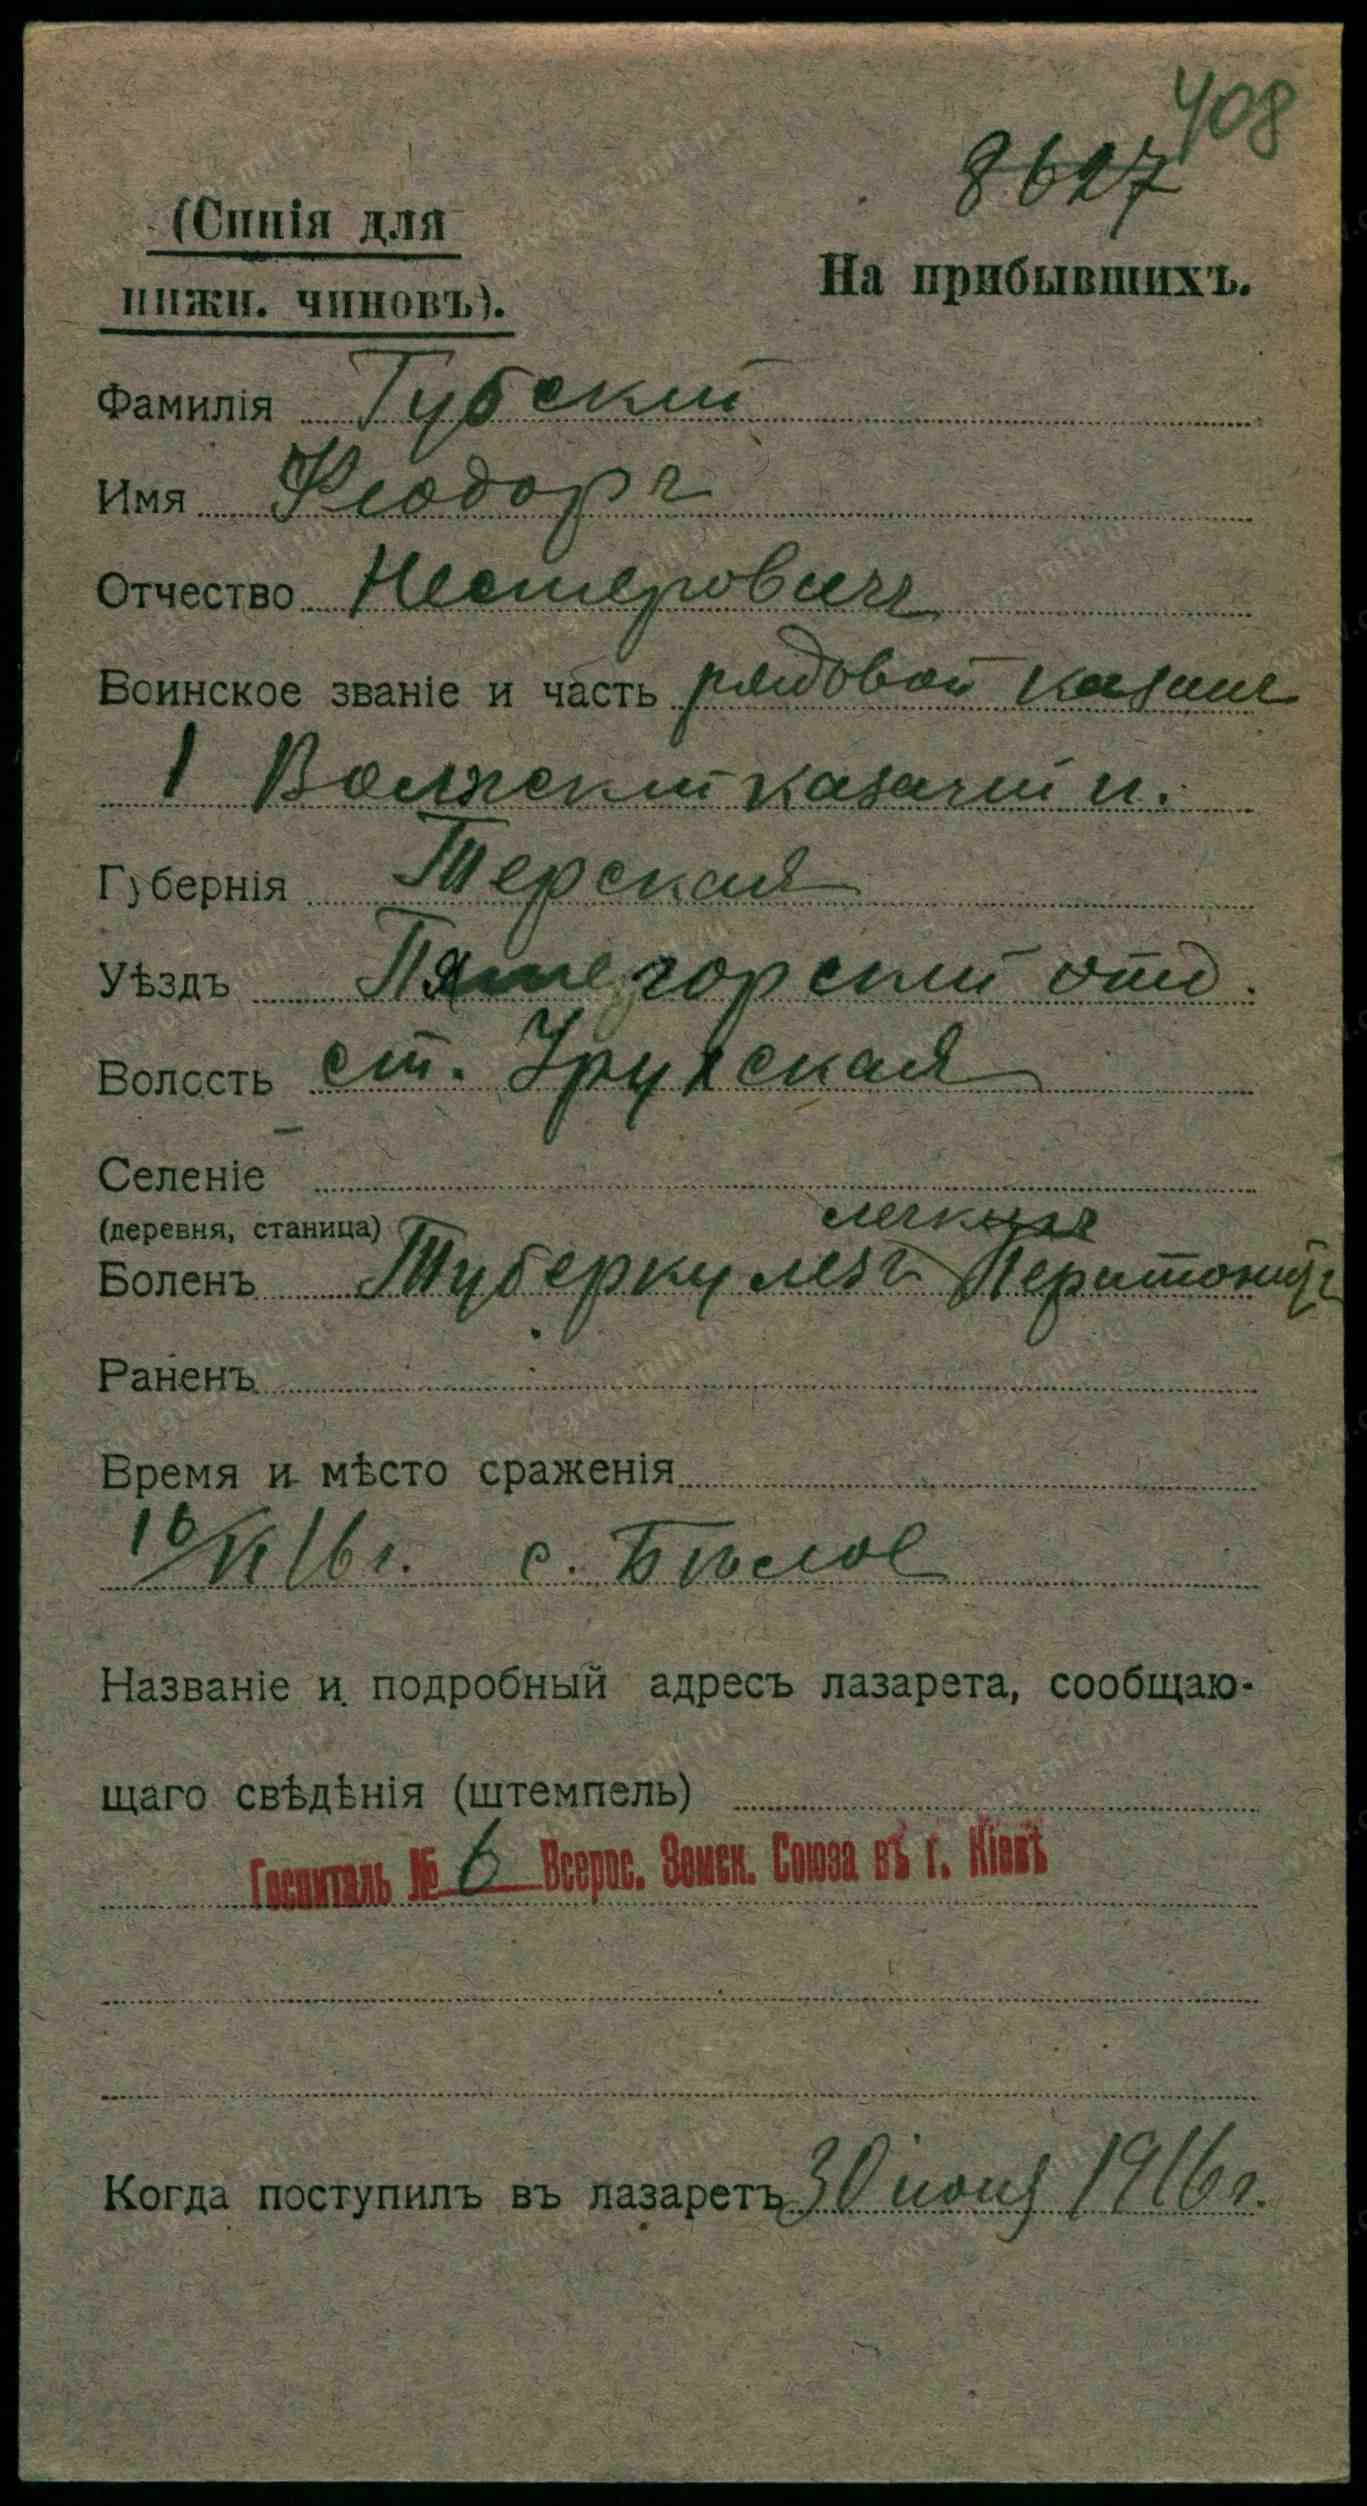 408
8627
(Синія для
нижн. чиновъ).
На прибывшихъ.
Фамилія Губский
Имя Феодоръ
Отчество Нестеровичъ
Воинское званіе и часть рядовой казакъ
1 Волжский казачий п.
Губернія Терская
Уѣздъ Пятегорский отд.
Волость ст. Урухская
Селеніе
(деревня, станица)
легкихъ
Боленъ Туберкулезъ Перитонитъ
Раненъ
Время и мѣсто сраженія
16/VI 16 г. с. Бѣлое
Названіе и подробный адресъ лазарета, сообщаю-
щаго свѣдѣнія (штемпель)
Госпиталь № 6 Всерос. Земск. Союза въ г. Кіевѣ
Когда поступилъ въ лазаретъ 30 іюня 1916 г.